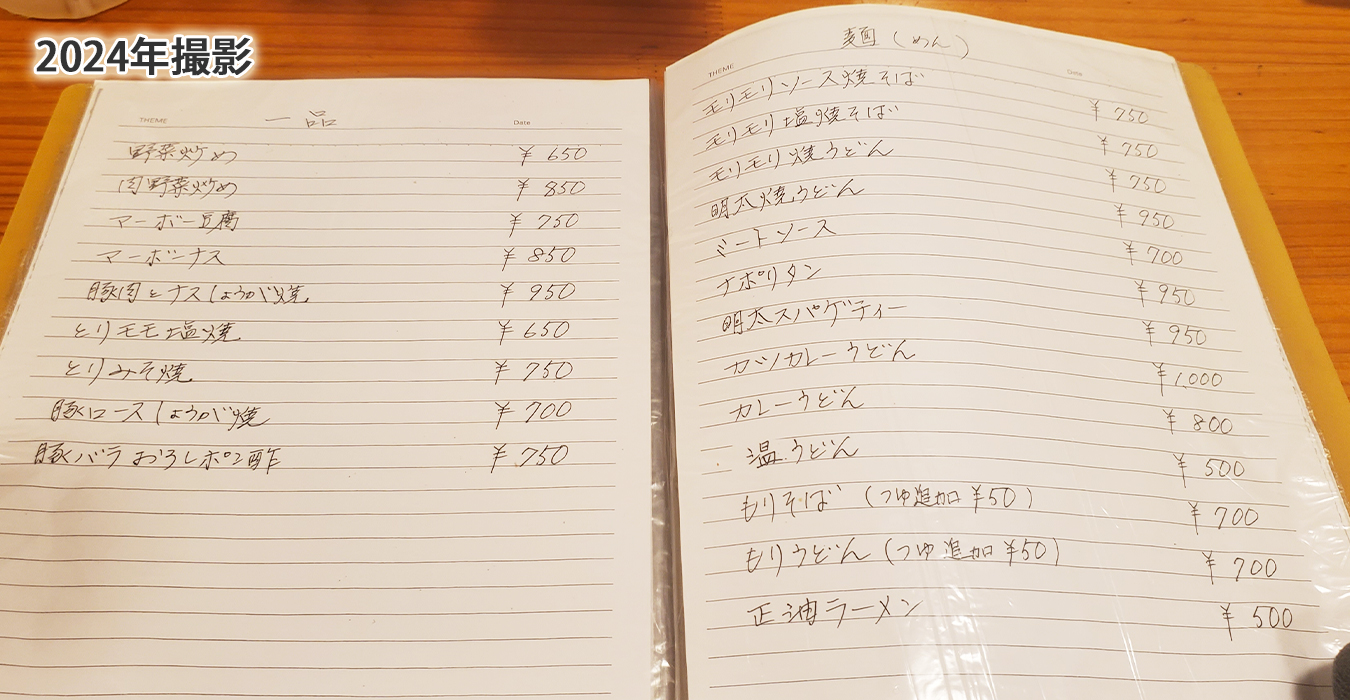 2024年撮影
THEME 一品 Date
野菜炒め ¥650
肉野菜炒め ¥850
マーボー豆腐 ¥750
マーボーナス ¥850
豚肉とナスしょうが焼 ¥950
とりモモ塩焼 ¥650
とりみそ焼 ¥750
豚ロースしょうが焼 ¥700
豚バラおろしポン酢 ¥750
麺(めん)
THEME Date
モリモリソース焼そば ¥750
モリモリ塩焼そば ¥750
モリモリ焼うどん ¥750
明太焼うどん ¥950
ミートソース ¥700
ナポリタン ¥950
明太スパゲティー ¥950
カツカレーうどん ¥1,000
カレーうどん ¥800
温うどん ¥500
もりそば (つゆ追加 ¥50) ¥700
もりうどん (つゆ追加 ¥50) ¥700
正油ラーメン ¥500